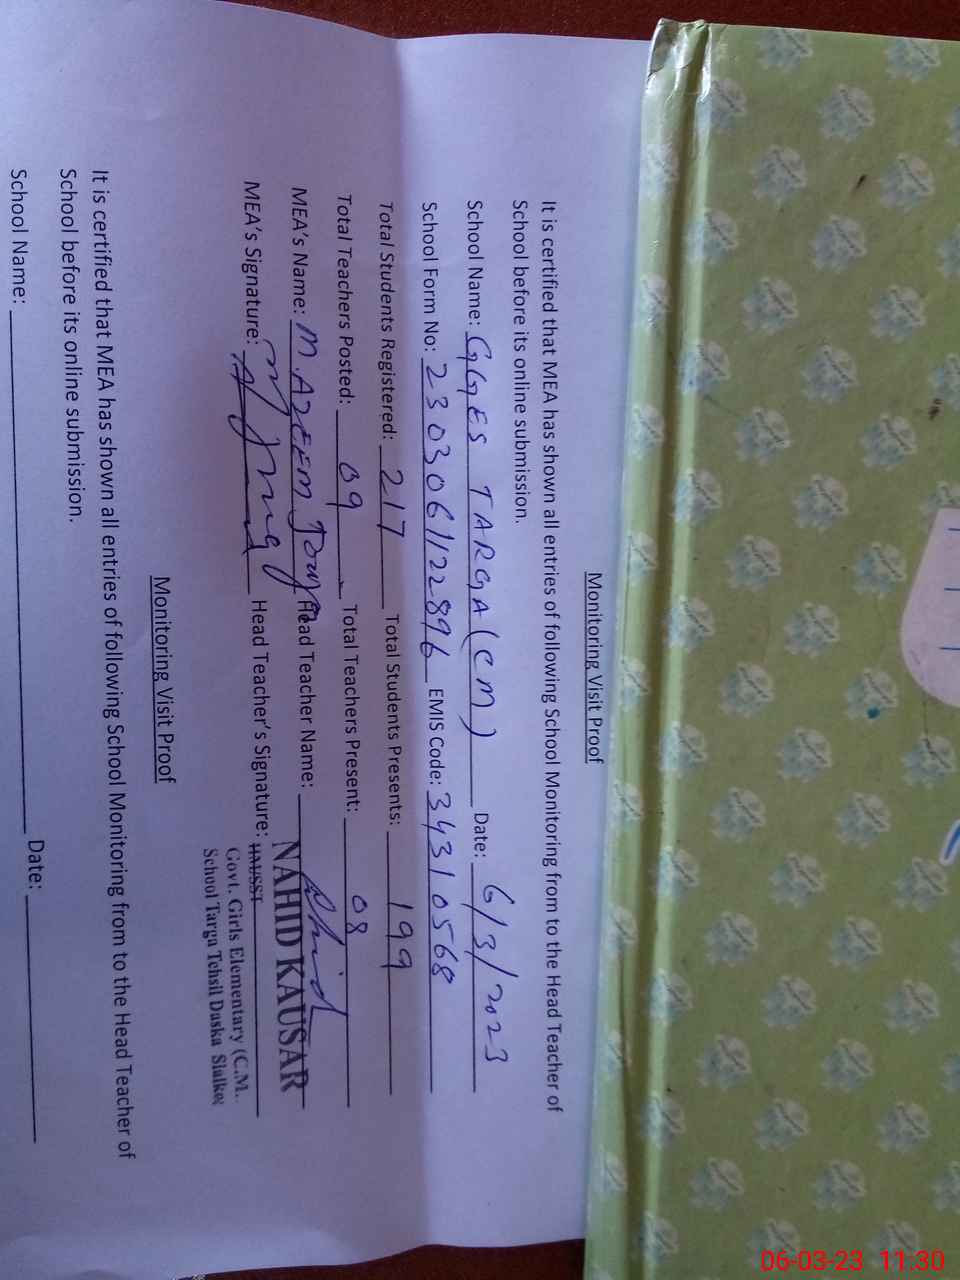 Monitoring Visit Proof
It is certified that MEA has shown all entries of following School Monitoring from to the Head Teacher of
School before its online submission.
School Name: GGES TARGA (CM) Date: 6/3/2023
School Form No: 2303061122896 EMIS Code: 34310568
Total Students Registered: 217 Total Students Presents: 199
Total Teachers Posted: 09 Total Teachers Present: 08
MEA's Name: M. AZEEM Jouya Head Teacher Name: NAHID KAUSAR
MEA's Signature: Head Teacher's Signature:
Govt. Girls Elementary (C.M.
School Targa Tehsil Daska Sialkot
Monitoring Visit Proof
It is certified that MEA has shown all entries of following School Monitoring from to the Head Teacher of
School before its online submission.
School Name: Date:
06-03-23 11:30